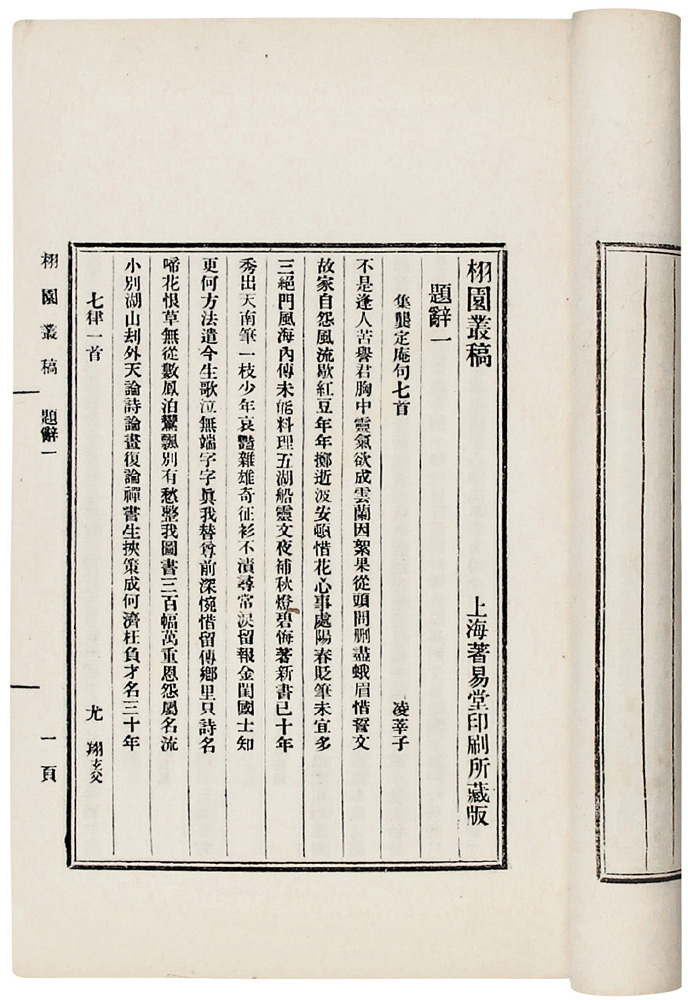 栩園叢稿　上海著易堂印刷所藏版
題辭一
集龔定庵句七首　凌莘子
不是逢人苦譽君胸中靈氣欲成雲蘭因絮果從頭問刪盡蛾眉惜誓文
故家自怨風流歇紅豆年年擲逝波安頓惜花心事處陽春貶筆未宜多
三絕門風海內傳未能料理五湖船靈文夜補秋燈碧悔著新書已十年
秀出天南筆一枝少年哀豔雜雄奇征衫不漬尋常淚留報金閨國士知
更何方法遣今生歌泣無端字字眞我替尊前深惋惜留傳鄉里只詩名
啼花恨草無從數鳳泊鸞飄別有愁整我圖書三百幅萬重恩怨屬名流
小別湖山劫外天論詩論畫復論禪書生挾策成何濟枉負才名三十年
七律一首　尤翔玄父
栩園叢稿　題辭一　一頁